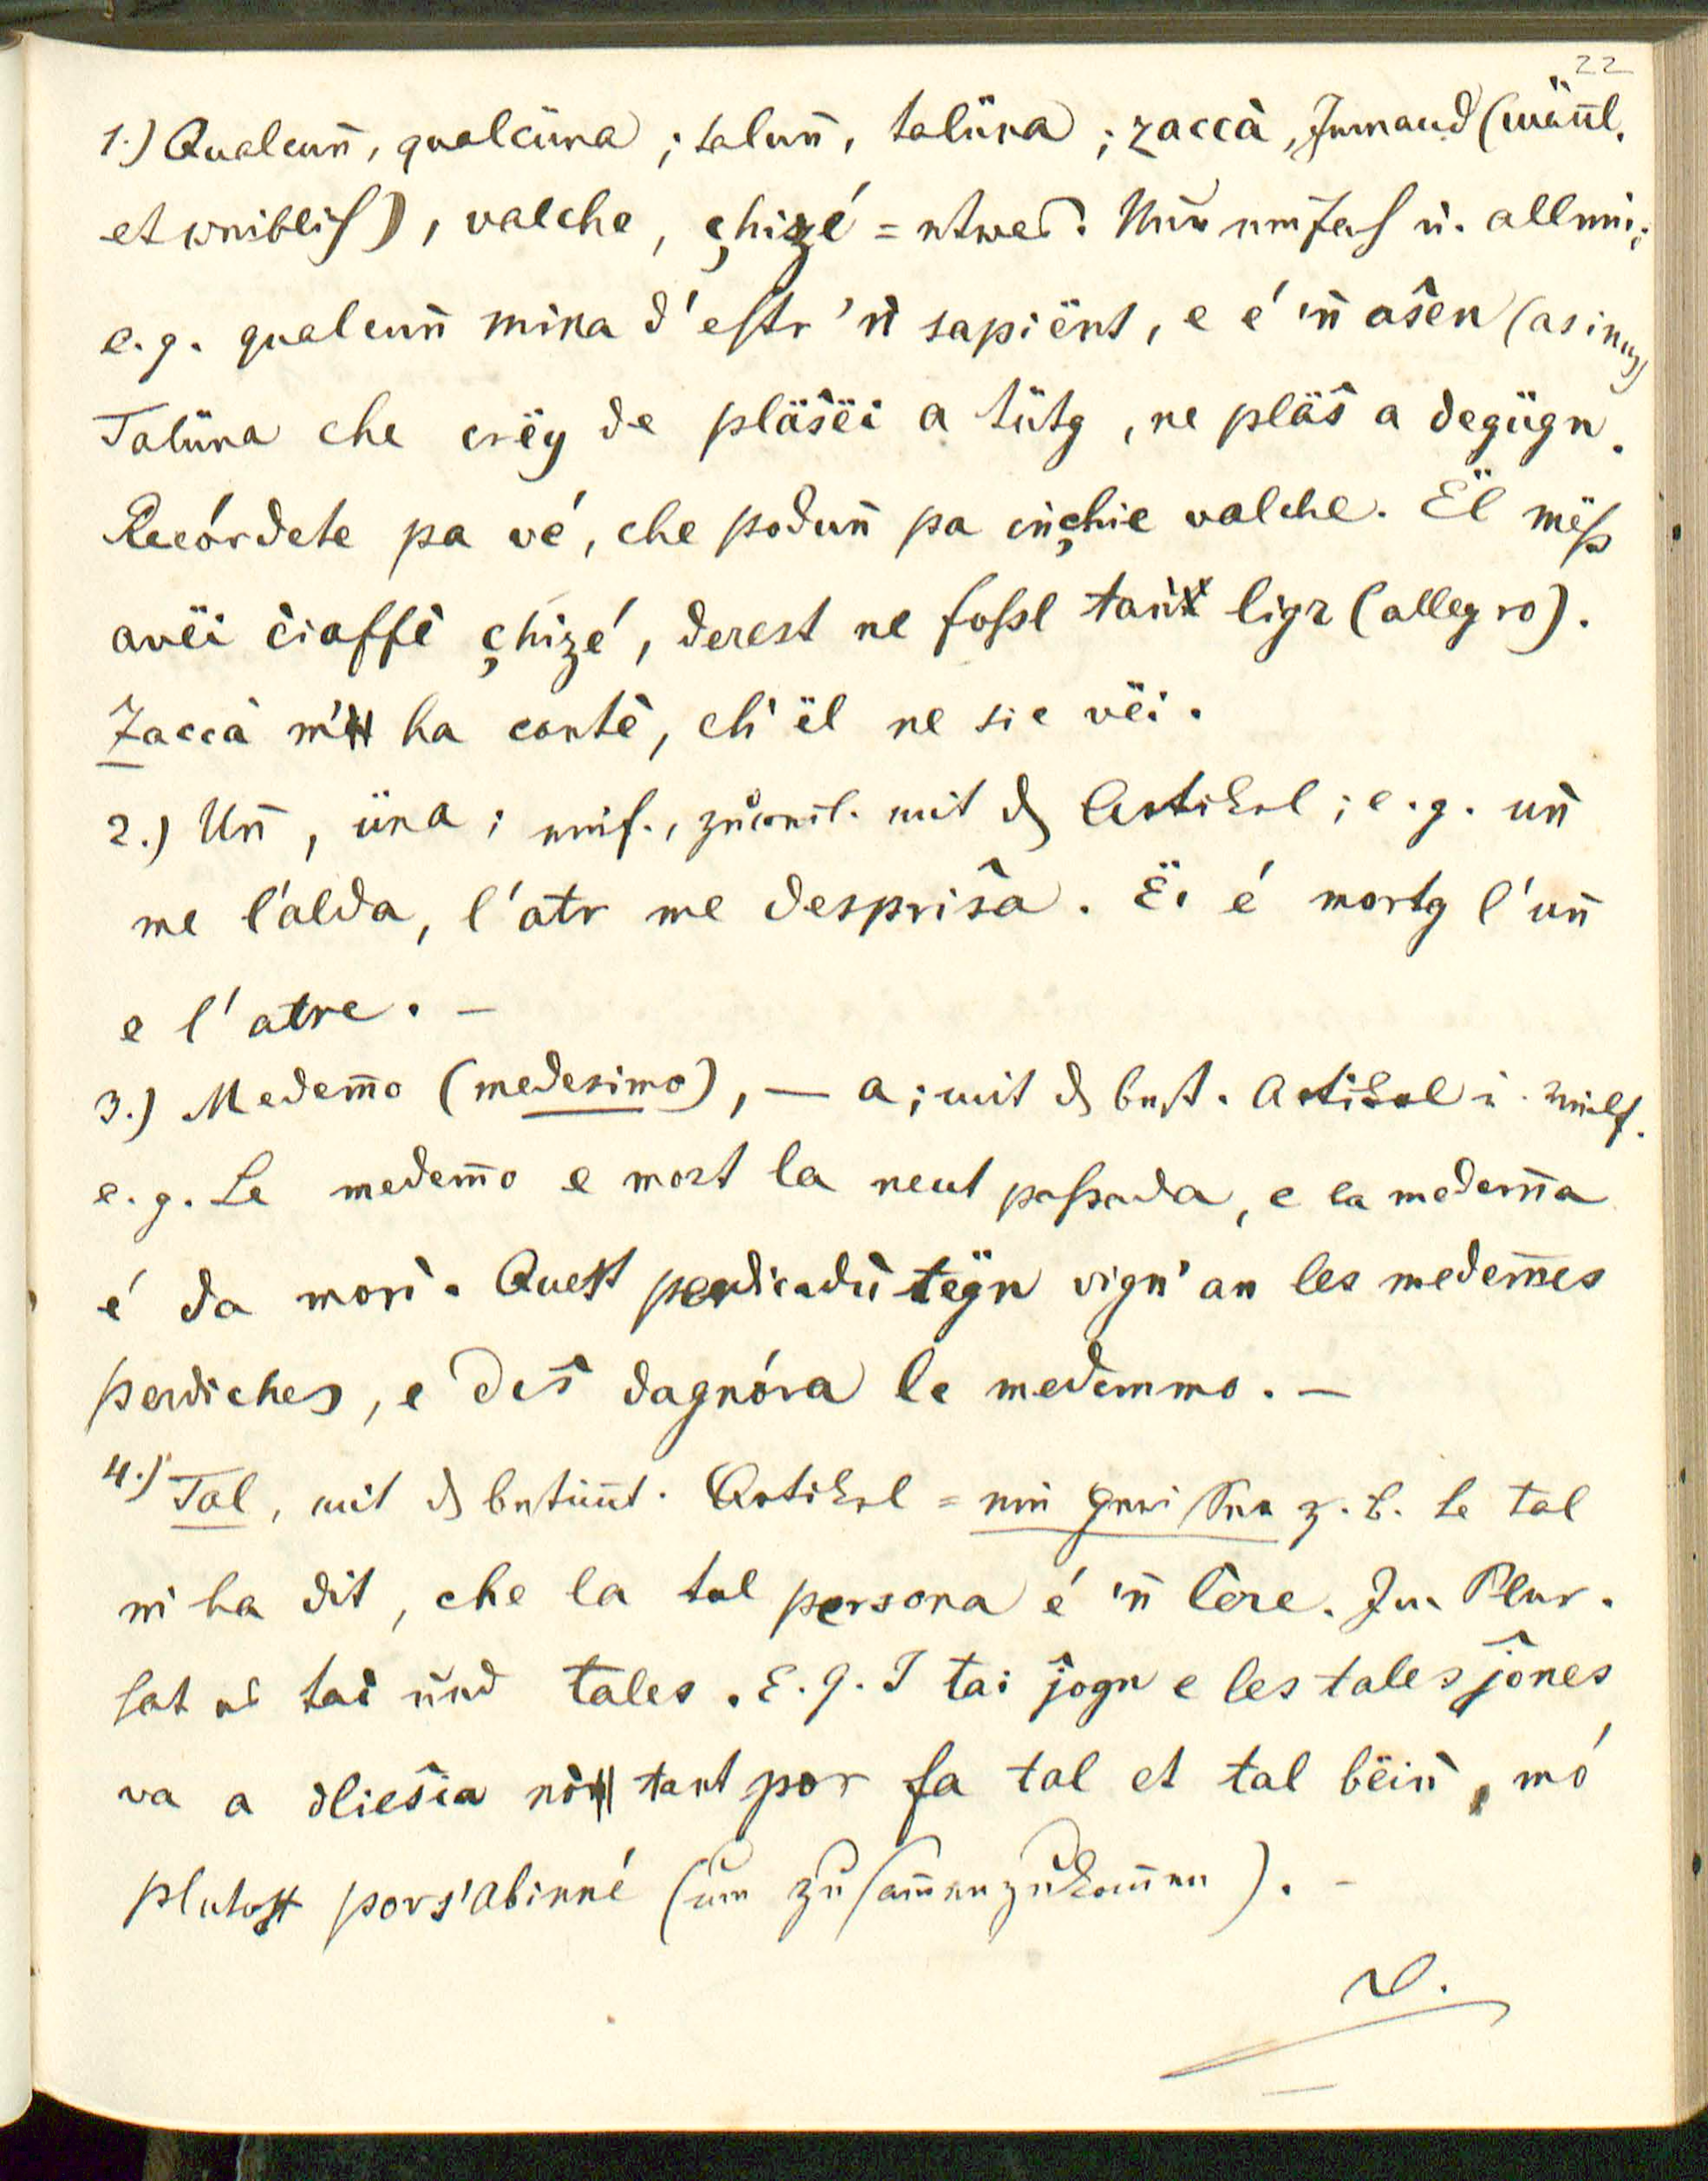 22
1.) Qualcun̄, qualcüna ; talun̄, talüna ; zaccà, Jemand (mäñl.
et weiblich), valche, çhizé = etwas. Nur einfach u. allein;
e.g. qualcun̄ mina d'estr 'n̄ sapiënt, e é 'n̄ aŝen (asinus)
Talüna che crëy de pläŝëi a tütg, ne pläŝ a degügn.
Recórdete pa vé, che podun̄ pa in̄çhie valche. Ël mëss
avëi ciaffè çhizé, derest ne fossl tan̄ ligr (allegro).
Zaccà m' ha contè, ch' ël ne sie vëi.
2.) Un̄, üna ; einf., zuweil. mit d Artikel ; e.g. un̄
me l'alda, l'atr me despriŝa. Ëi é mortg l'un̄
e l'atre. –
3.) Medem̄o (medesimo), — a ; mit d best. Artikel
e.g. Le medem̄o e mort la neut passada, e la medem̄a
é da morì. Quest perdicadù tëgn vign' an les medem̄es
perdiches, e deŝ dagnóra le medemmo. –
4.) Tal, mit d bestim̄t. Artikel = ein gewisser z. b. Le tal
m' ha dit, che la tal persona é 'n̄ lère. Im Plur.
hat es tai und tales. E.g. I tai ĵogn e les tales ĵones
va a dlieŝia nò tant por fa tal et tal bëin̄, mó
plutost por s'abinné (um zusam̄enzukom̄en). –